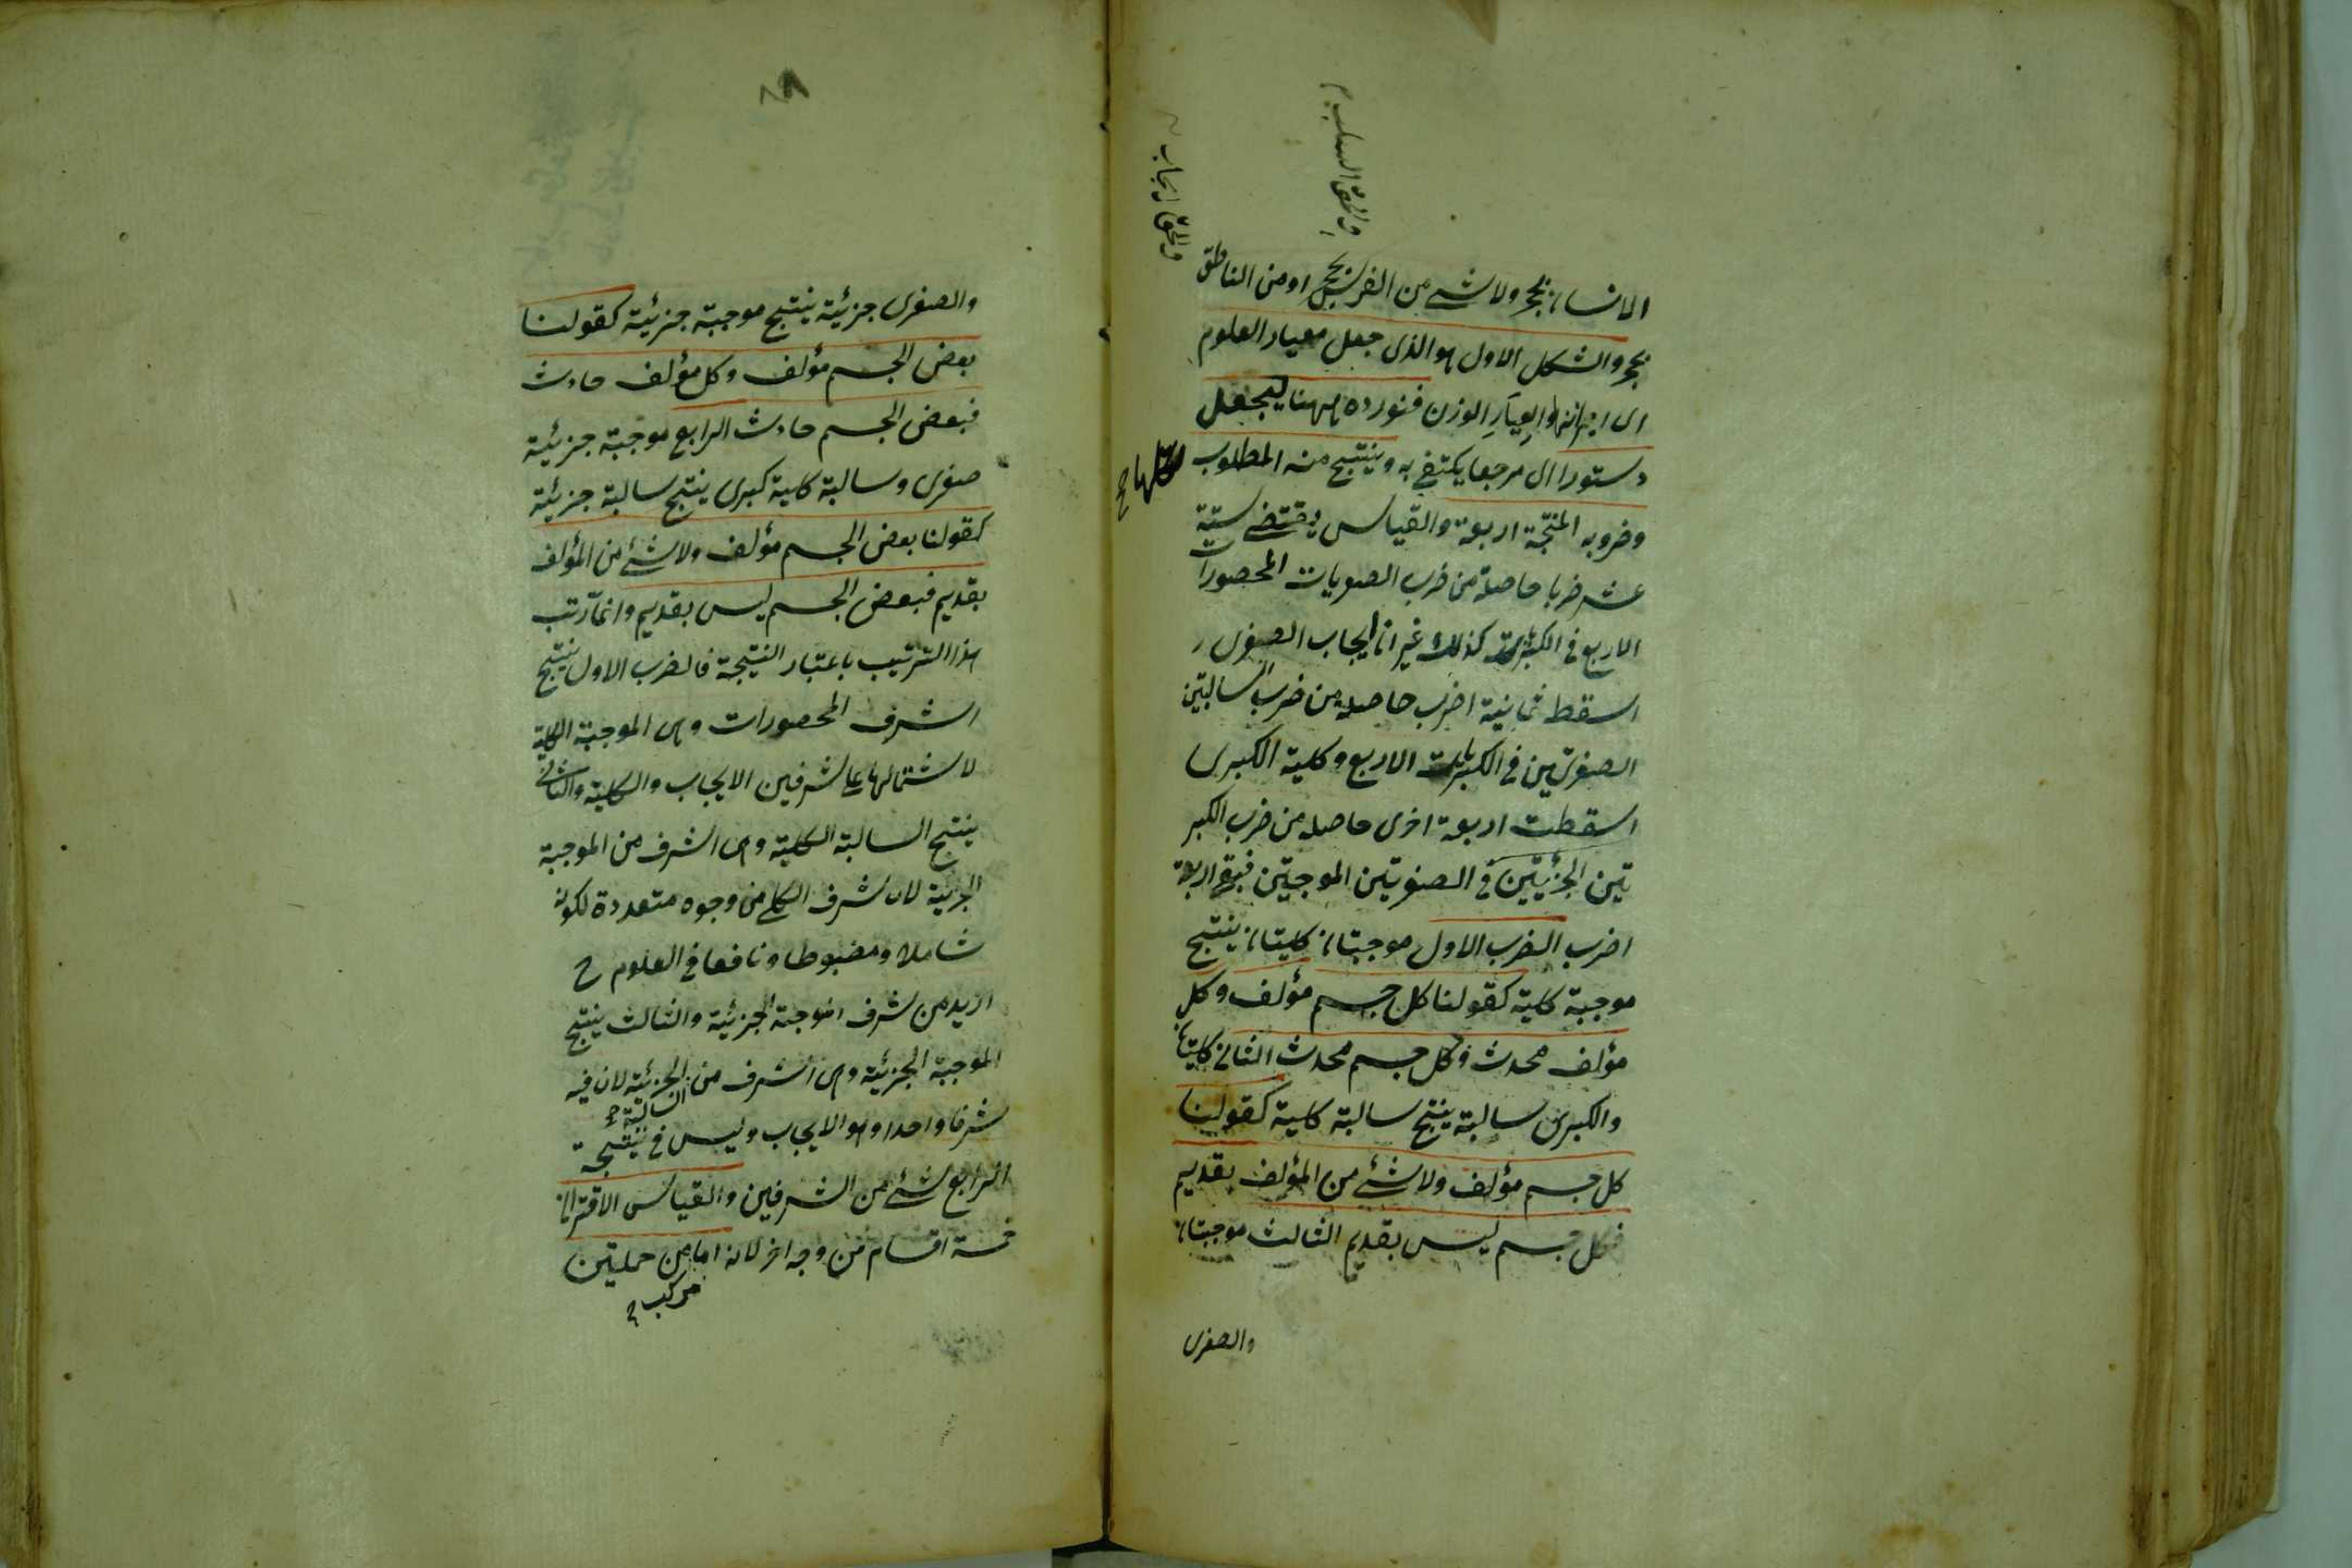 والحق السلب م
والحق الايجاب
الانسان بحجر ولا شئ من الفرس بحجر او من الناطق
بحجر والشكل الاول هو الذى جعل معيار العلوم
اى ميزانها والعيار الوزن فنورده ههنا ليجعل
دستورا اى مرجعا يكتفى به وينتج منه المطلوب
وضروبه المنتجة اربعة والقياس يقتضى ستة
عشر ضربا حاصلة من ضرب الصغريات المحصورات
الاربع فى الكبريات كذلك غير ان ايجاب الصغرى
اسقط ثمانية اضرب حاصلة من ضرب السالبتين
الصغريين فى الكبريات الاربع وكلية الكبرى
اسقطت اربعة اخرى حاصلة من ضرب الكبر
يتين الجزئيتين فى الصغريتين الموجبتين فبقى اربعة
اضرب الضرب الاول موجبتان كليتان ينتج
موجبة كلية كقولنا كل جسم مؤلف وكل
مؤلف محدث فكل جسم محدث الثانى كليتان
والكبرى سالبة ينتج سالبة كلية كقولنا
كل جسم مؤلف ولا شئ من المؤلف بقديم
فكل جسم ليس بقديم الثالث موجبتان
والصغرى
والصغرى جزئية ينتج موجبة جزئية كقولنا
بعض الجسم مؤلف وكل مؤلف حادث
فبعض الجسم حادث الرابع موجبة جزئية
صغرى وسالبة كلية كبرى ينتج سالبة جزئية
كقولنا بعض الجسم مؤلف ولا شئ من المؤلف
بقديم فبعض الجسم ليس بقديم وانما رتب
هذا الترتيب باعتبار النتيجة فالضرب الاول ينتج
اشرف المحصورات وهى الموجبة الكلية
لاشتمالها على شرفين الايجاب والكلية والثانى
ينتج السالبة الكلية وهى اشرف من الموجبة
الجزئية لان شرف الكلى من وجوه متعددة لكونه
شاملا ومضبوطا ونافعا فى العلوم ح
ازيد من شرف الموجبة الجزئية والثالث ينتج
الموجبة الجزئية وهى اشرف من الجزئية لان فيه
السالبة
شرفا واحدا وهو الايجاب وليس فى نتيجة
الرابع شئ من الشرفين والقياس الاقترانى
خمسة اقسام من وجه اخر لانه اما من حمليتين
مركب